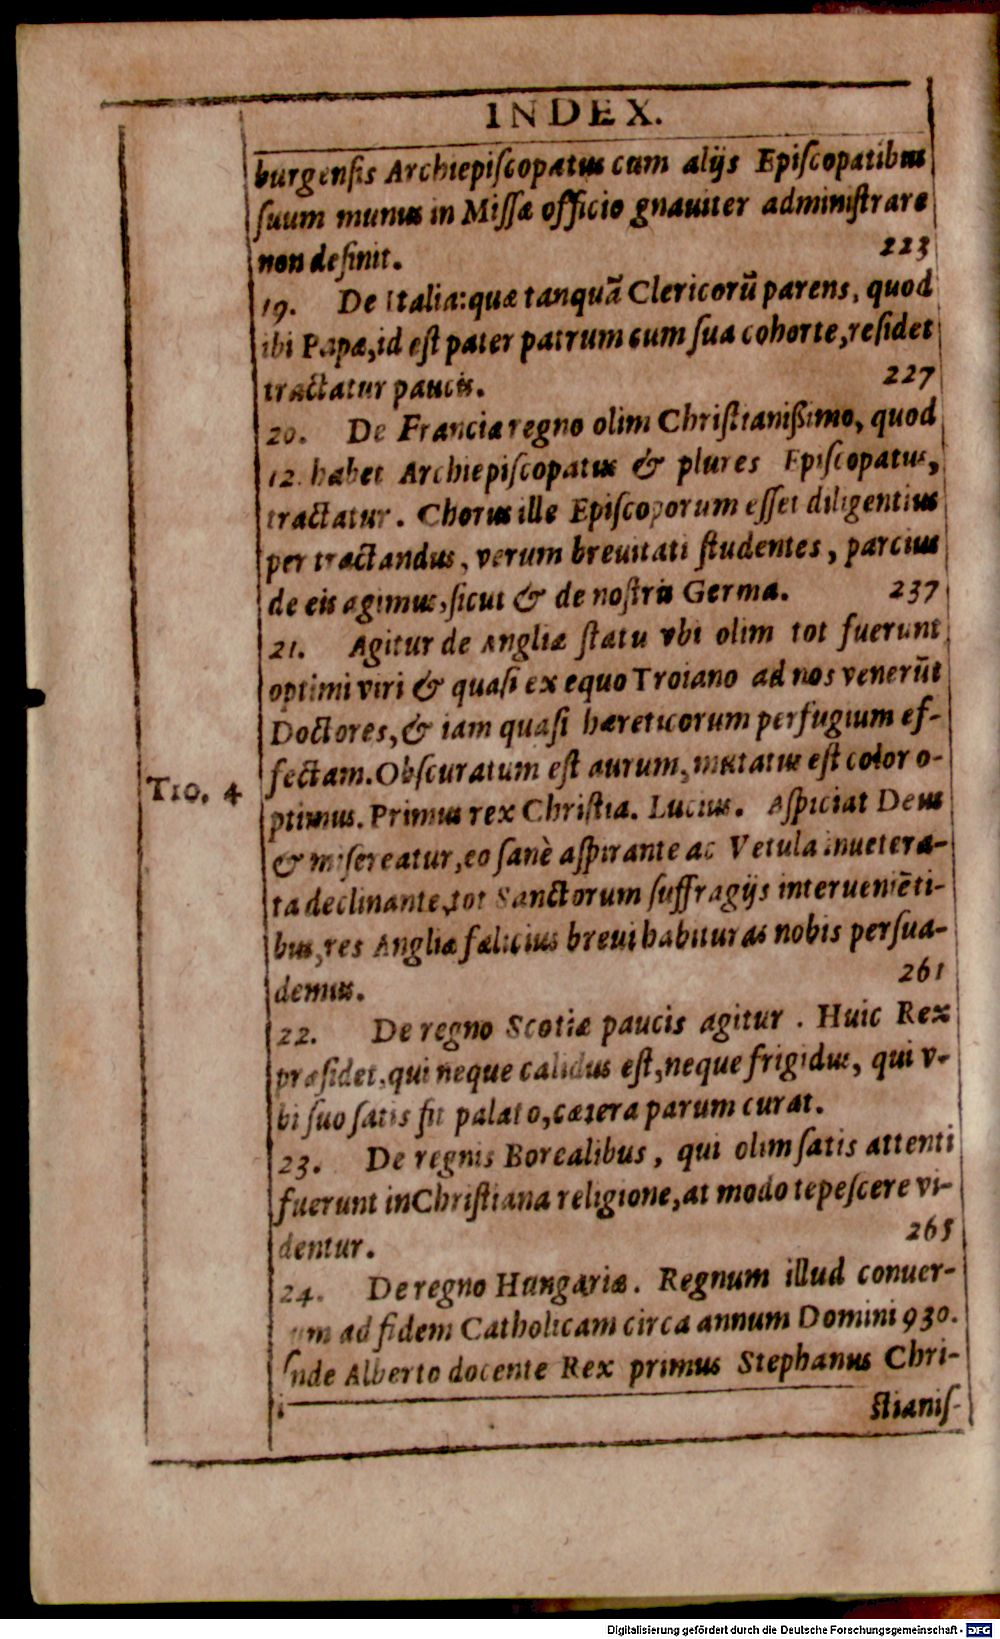 INDEX.
burgensis Archiepiſcopatus cum alijs Epiſcopatibus
ſuum munus in Miſſæ officio gnauiter adminiſtrare
non desinit. 223
19. De Italia: quæ tanquã Clericorũ parens, quod
ibi Papæ, id eſt pater patrum cum ſua cohorte, reſidet
tractatur paucis. 227
20. De Francia regno olim Chriſtianißimo, quod
12. habet Archiepiſcopatus & plures Epiſcopatus,
tractatur. Chorus ille Epiſcoporum eſſet diligentius
per tractandus, verum breuitati ſtudentes, parcius
de eis agimus, ſicut & de noſtris Germa. 237
21. Agitur de Angliæ ſtatu vbi olim tot fuerunt
optimi viri & quaſi ex equo Troiano ad nos venerũt
Doctores, & iam quaſi hæreticorum perfugium ef-
fectam. Obſcuratum eſt aurum, mutatus eſt color o-
Tio. 4
ptimus. Primus rex Chriſtia. Lucius. Aſpiciat Deus
& miſereatur, eo ſanè aſpirante ac Vetula inuetera-
ta declinante, tot Sanctorum ſuffragijs interueniẽti-
bus, res Angliæ fælicius breui habituras nobis perſua-
demus. 261
22. De regno Scotiæ paucis agitur. Huic Rex
præſidet, qui neque calidus eſt, neque frigidus, qui v-
bi ſuo ſatis fit palato, cætera parum curat.
23. De regnis Borealibus, qui olim ſatis attenti
fuerunt in Chriſtiana religione, at modo tepeſcere vi-
dentur. 265
24. De regno Hungariæ. Regnum illud conuer-
um ad fidem Catholicam circa annum Domini 930.
ſnde Alberto docente Rex primus Stephanus Chri-
ſtianiſ-
Digitalisierung gefördert durch die Deutsche Forschungsgemeinschaft - DFG